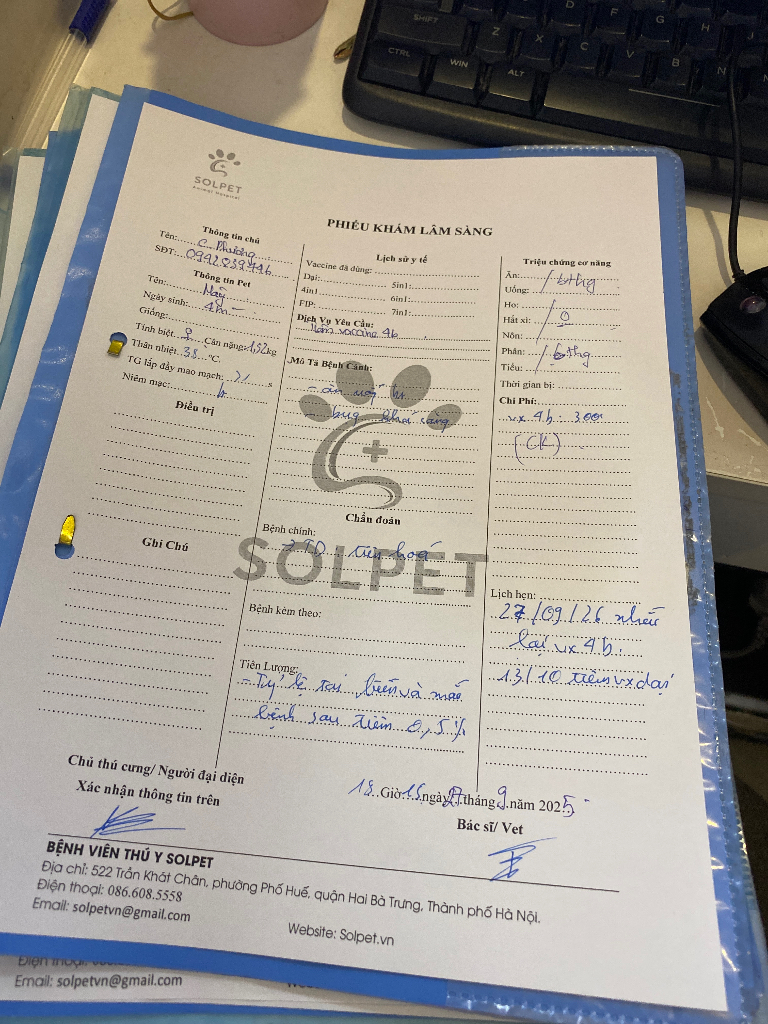 SHIFT
Z
X
C
V
B
N
D
F
G
H
J
CTRL
WIN
ALT
SOLPET
Animal Hospital
PHIẾU KHÁM LÂM SÀNG
Thông tin chủ
Tên: C. Phương
SĐT:
Thông tin Pet
Tên: Mây
Ngày sinh: 4m
Giống:
Tính biệt: ♀ Cân nặng: 1,52 kg
Thân nhiệt: 38 °C.
TG lấp đầy mao mạch: s
Niêm mạc:
Điều trị
Ghi Chú
Lịch sử y tế
Vaccine đã dùng:
Dại: 5in1:
4in1: 6in1:
FIP: 7in1:
Dịch Vụ Yêu Cầu:
tiêm vaccine 4b
Mô Tả Bệnh Cảnh:
- ăn uống bt
Chẩn đoán
Bệnh chính:
SOLPET
Bệnh kèm theo:
Tiên Lượng:
- Tỷ lệ tai biến và mắc
bệnh sau tiêm 0,5%
Triệu chứng cơ năng
Ăn: / bthg
Uống:
Ho:
Hắt xì: / 0
Nôn:
Phân: / bthg
Tiểu:
Thời gian bị:
Chi Phí:
vx 4b: 300
(CK)
Lịch hẹn:
27/09/26 nhắc
lại vx 4b.
13/10 tiêm vx dại
Chủ thú cưng/ Người đại diện
Xác nhận thông tin trên
18 Giờ 15 ngày 27 tháng 9 năm 2025
Bác sĩ/ Vet
BỆNH VIÊN THÚ Y SOLPET
Địa chỉ: 522 Trần Khát Chân, phường Phố Huế, quận Hai Bà Trưng, Thành phố Hà Nội.
Điện thoại: 086.608.5558
Email: solpetvn@gmail.com
Website: Solpet.vn
Email: solpetvn@gmail.com